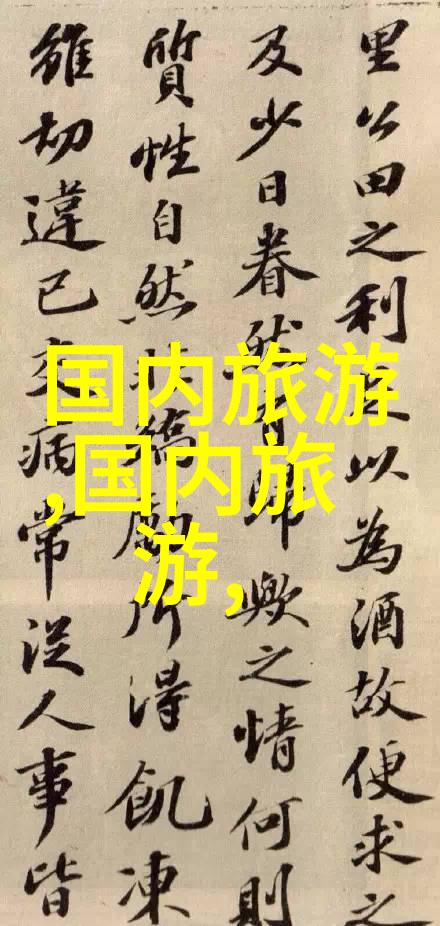 里公田之利足以為酒故便求之
及少日眷然有歸歟之情何則
質性自然非矯勵所得飢凍
雖切違已交病常從人事皆
国内旅游
,国内旅
游,